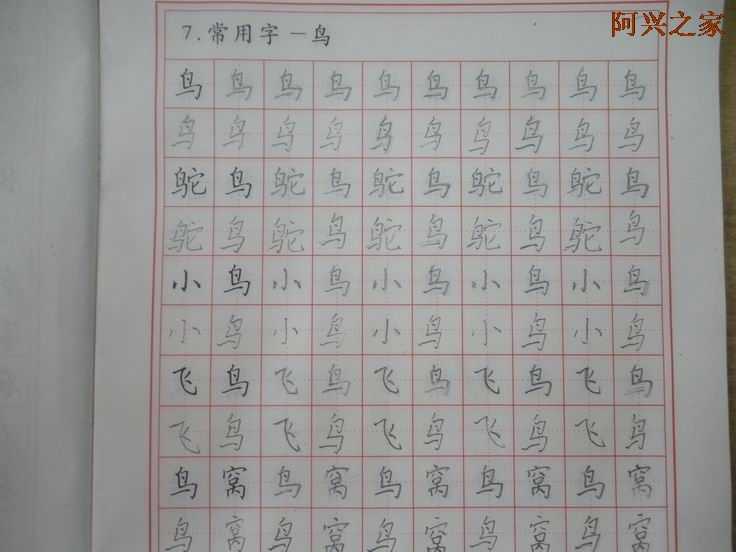 阿兴之家
7.常用字—鸟
鸟鸟鸟鸟鸟鸟鸟鸟鸟鸟
鸟鸟鸟鸟鸟鸟鸟鸟鸟鸟
鸵鸟鸵鸟鸵鸟鸵鸟鸵鸟
鸵鸟鸵鸟鸵鸟鸵鸟鸵鸟
小鸟小鸟小鸟小鸟小鸟
小鸟小鸟小鸟小鸟小鸟
飞鸟飞鸟飞鸟飞鸟飞鸟
飞鸟飞鸟飞鸟飞鸟飞鸟
鸟窝鸟窝鸟窝鸟窝鸟窝
鸟窝鸟窝鸟窝鸟窝鸟窝